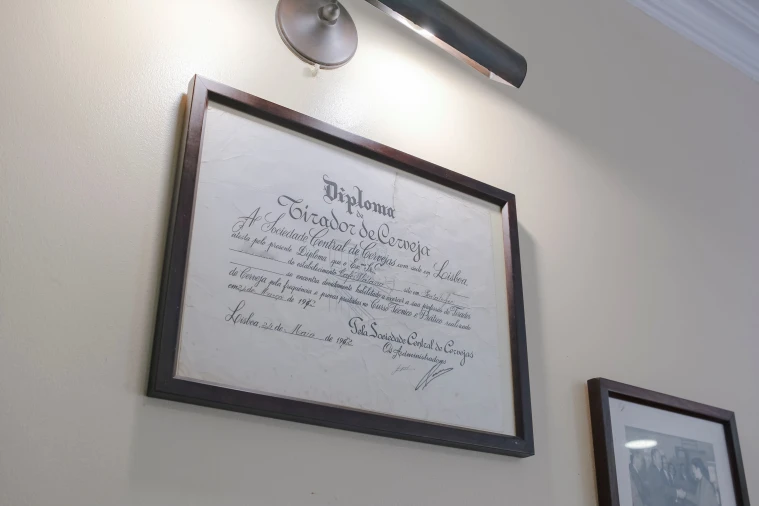 Diploma
de
Tirador de Cerveja
A Sociedade Central de Cervejas com sede em Lisboa
atesta pelo presente Diploma que o Exmo Sr.
do estabelecimento Café sito em
se encontra devidamente habilitado a exercer a sua profissão de Tirador
de Cerveja pela frequência e provas prestadas no Curso Técnico e Prático realizado
em de Março de 1972
Lisboa, de Maio de 1972
Pela Sociedade Central de Cervejas
Os Administradores